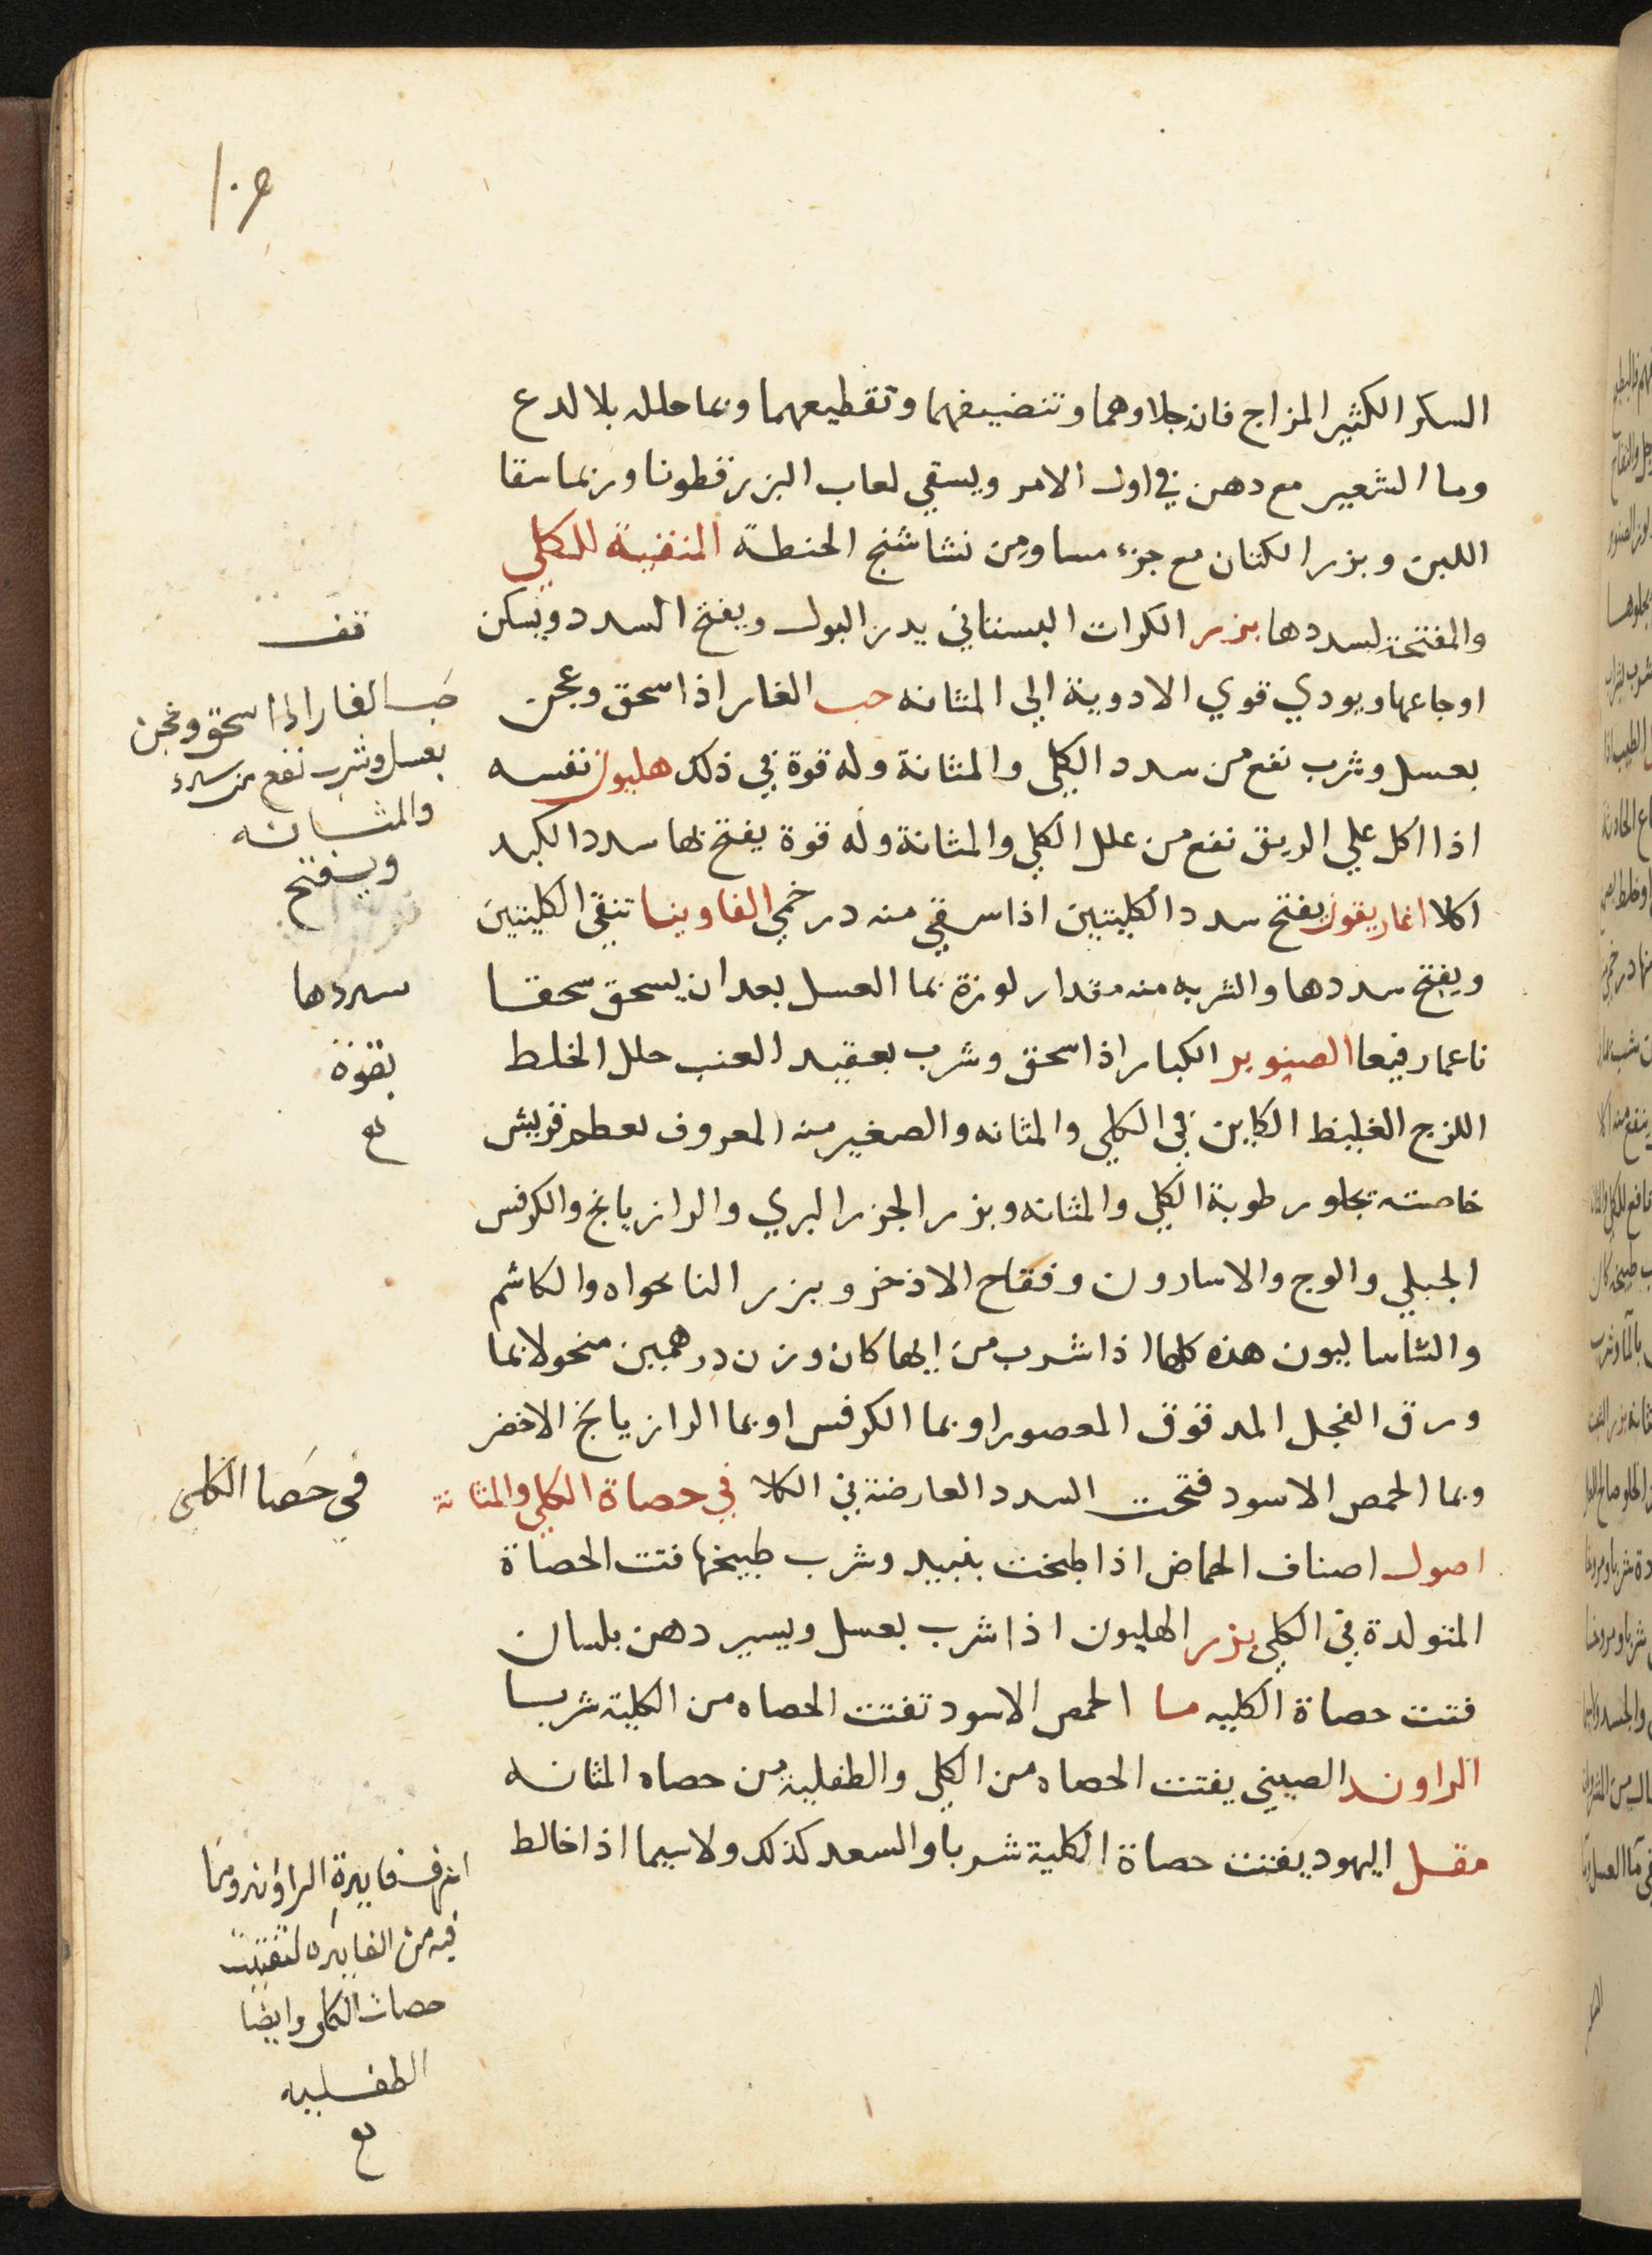 ١٠٩
السكر الكثير المزاج فان جلاوهما وتنضيفهما وتقطيعهما وبما حلله بلا لدع
وما الشعير مع دهن في اول الامر ويسقي لعاب البزرقطونا وربما سقا
اللبن وبزر الكتان مع جزء مساو من نشاشنج الحنطة المنقية للكلي
والمفتحة لسددها بزر الكراث البستاني يدر البول ويفتح السدد ويسكن
اوجاعها ويودي قوي الادوية الي المثانه حب الغار اذا سحق وعجن
بعسل وشرب نفع من سدد الكلي والمثانة وله قوة في ذلك هليون نفسه
اذا اكل علي الريق نفع من علل الكلي والمثانة وله قوة يفتح بها سدد الكبد
اكلا اغاريقون يفتح سدد الكليتين اذا سقي منه درخمي الفاوينا تنقي الكليتين
ويفتح سددها والشربه منه مقدار لوزة بما العسل بعد ان يسحق سحقا
ناعما رفيعا الصنوبر الكبار اذا سحق وشرب بعقيد العنب حلل الخلط
اللزج الغليظ الكاين في الكلي والمثانه والصغير منه المعروف بعطم قريش
خاصته يجلو رطوبة الكلي والمثانه وبزر الجزر البري والرازيانج والكرفس
الجبلي والوج والاسارون وفقاح الاذخر وبزر النانحواه والكاشم
والشاساليون هذه كلها اذا شرب من ايها كان وزن درهمين منخولا بما
ورق الفجل المدقوق المعصور او بما الكرفس او بما الرازيانج الاخضر
وبما الحمص الاسود فتحت السدد العارضة في الكلا في حصاة الكلي والمثانة
اصول اصناف الحماض اذا طبخت بنبيد وشرب طبيخها فتت الحصاة
المتولدة في الكلي بزر الهليون اذا شرب بعسل ويسير دهن بلسان
فتت حصاة الكليه ما الحمص الاسود تفتت الحصاه من الكلية شربا
الراوند الصيني يفتت الحصاه من الكلي والطفلية من حصاه المثانه
مقل اليهود يفتت حصاة الكلية شربا والسعد كذلك ولا سيما اذا خالط
قف
حب الغار اذا سحق وعجن
بعسل وشرب نفع من سدد
والمثانه
ويفتح
سددها
بقوة
في حصا الكلى
اعرف فايدة الراوند وما
فيه من الفايده لتفتيت
حصات الكلى وايضا
الطفليه